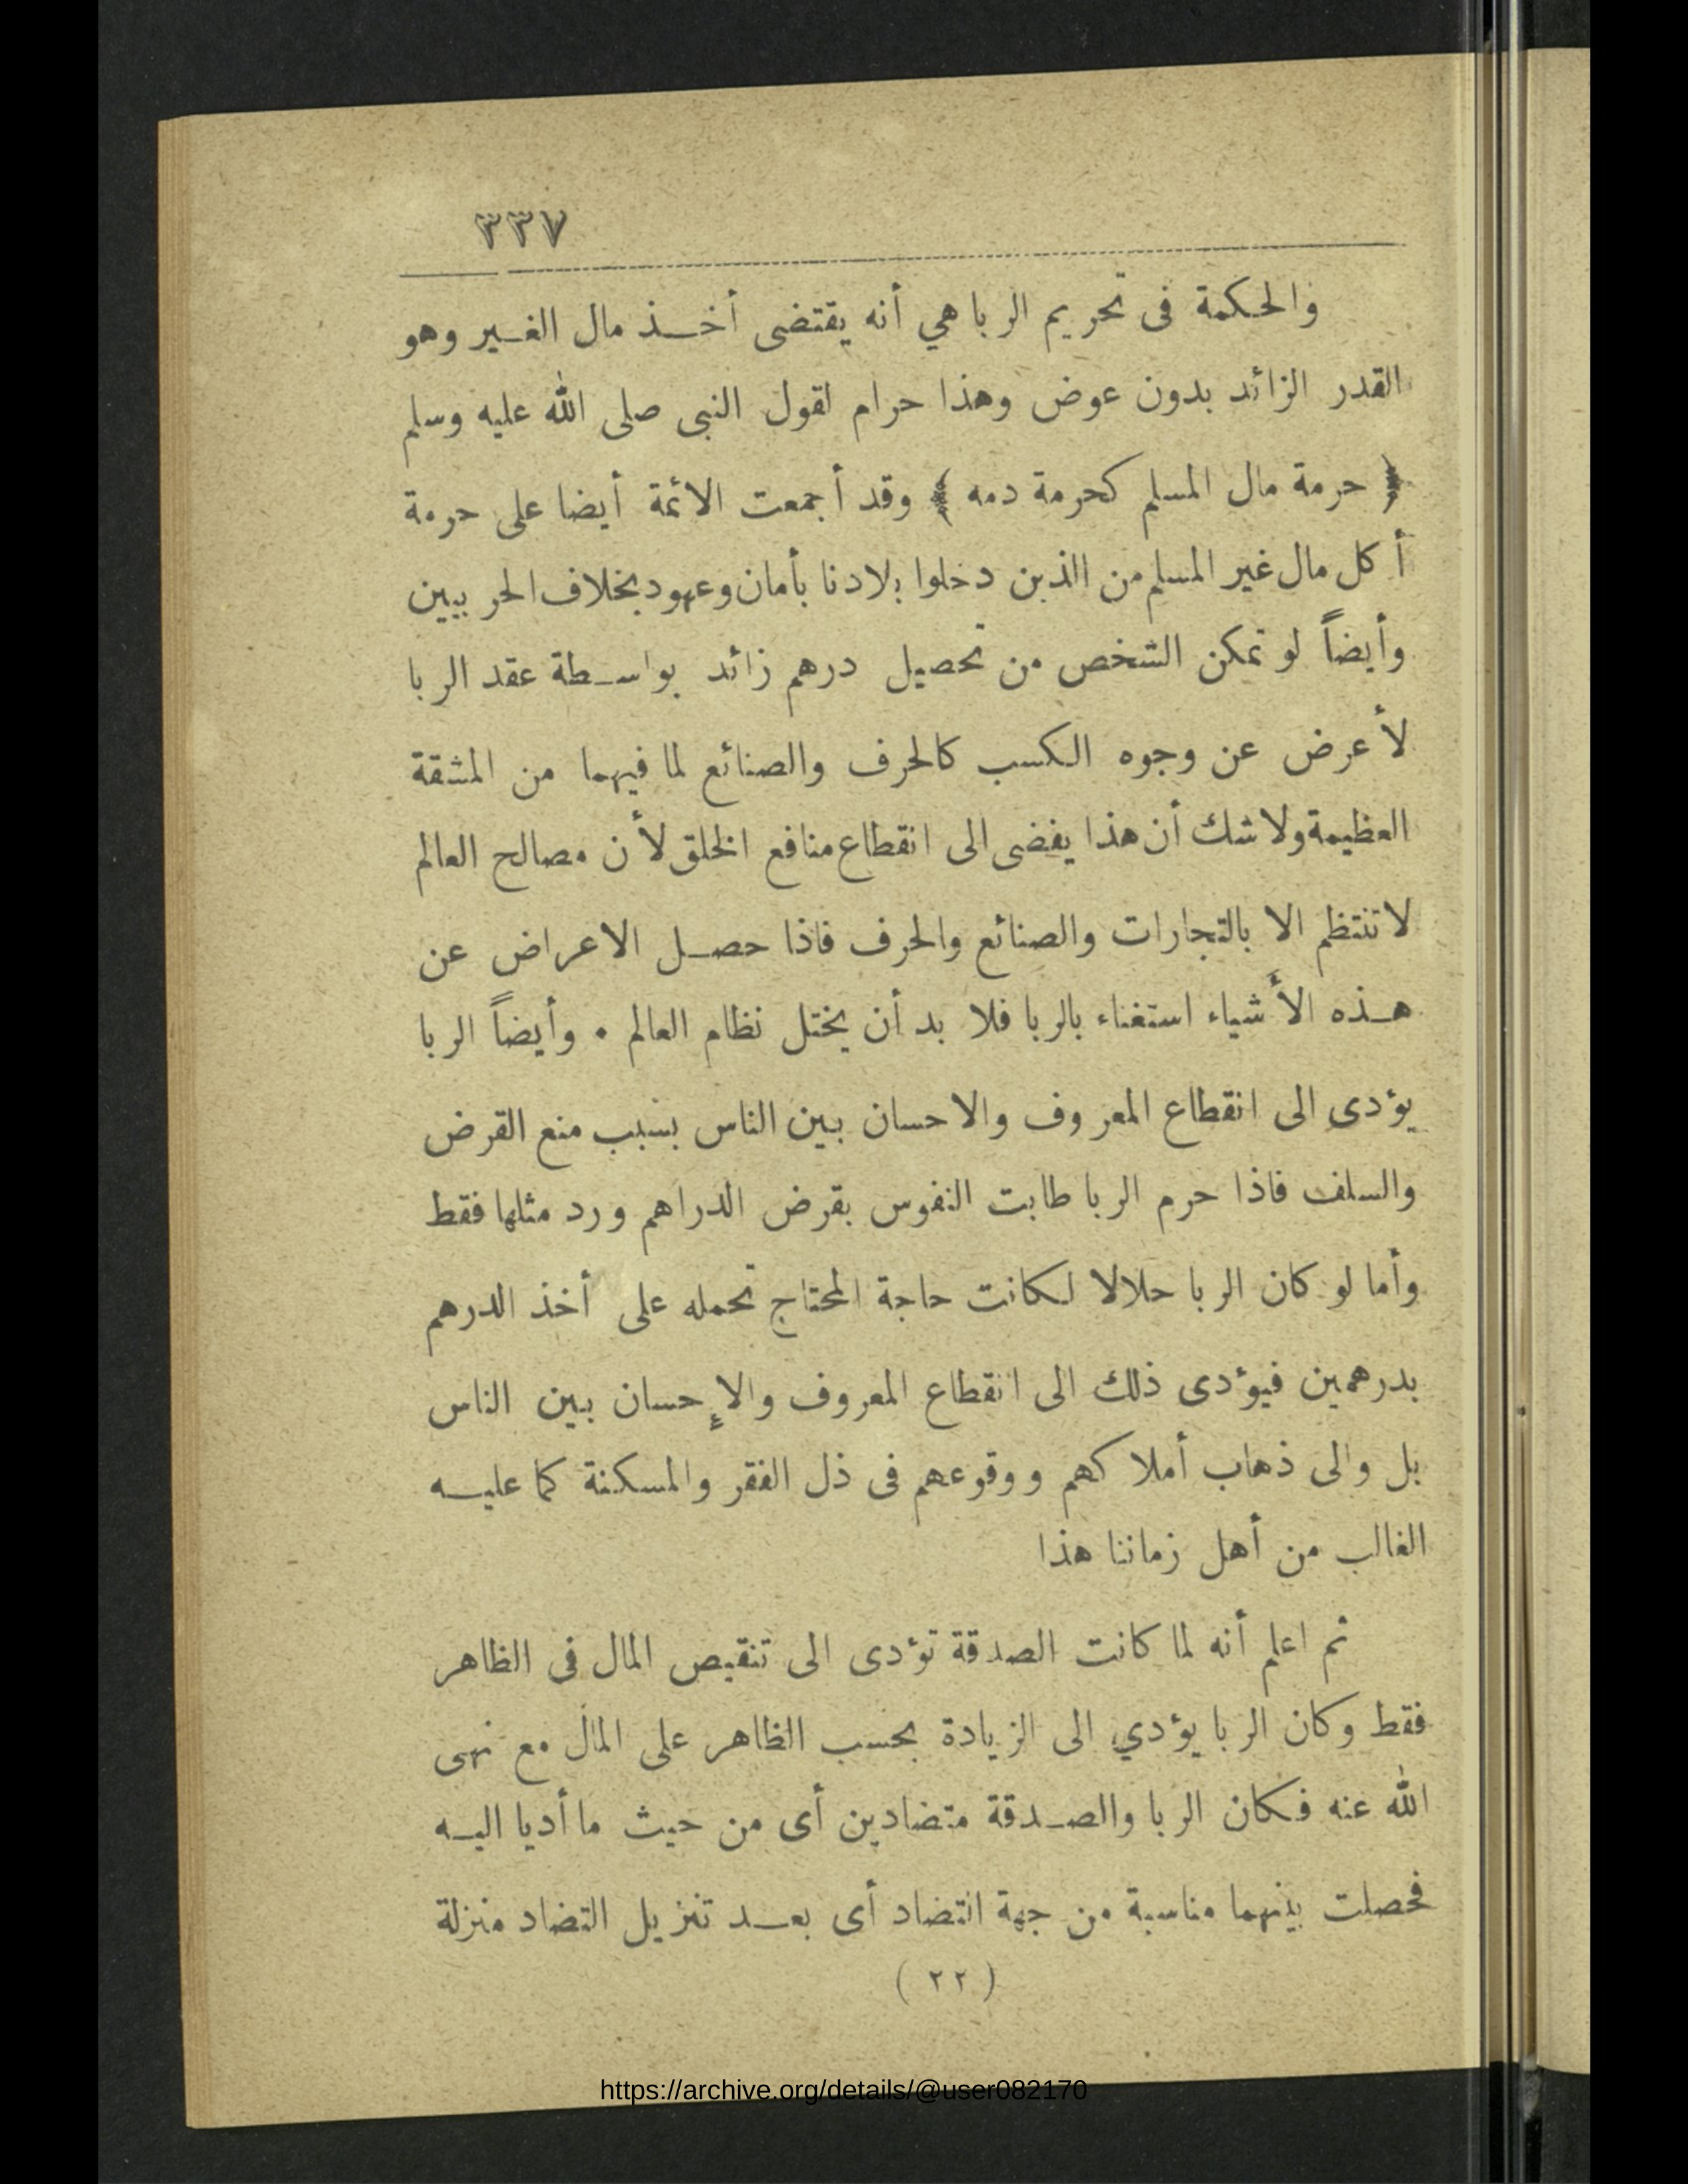 ٣٣٧
والحكمة فى تحريم الربا هي أنه يقتضى أخذ مال الغير وهو
القدر الزائد بدون عوض وهذا حرام لقول النبى صلى الله عليه وسلم
﴿ حرمة مال المسلم كحرمة دمه ﴾ وقد أجمعت الائمة أيضا على حرمة
أكل مال غير المسلم من الذين دخلوا بلادنا بأمان وعهود بخلاف الحربيين
وأيضاً لو تمكن الشخص من تحصيل درهم زائد بواسطة عقد الربا
لأعرض عن وجوه الكسب كالحرف والصنائع لما فيهما من المشقة
العظيمة ولا شك أن هذا يفضى الى انقطاع منافع الخلق لأن مصالح العالم
لا تنتظم الا بالتجارات والصنائع والحرف فاذا حصل الاعراض عن
هذه الأشياء استغناء بالربا فلا بد أن يختل نظام العالم . وأيضاً الربا
يؤدى الى انقطاع المعروف والاحسان بين الناس بسبب منع القرض
والسلف فاذا حرم الربا طابت النفوس بقرض الدراهم ورد مثلها فقط
وأما لو كان الربا حلالا لكانت حاجة المحتاج تحمله على أخذ الدرهم
بدرهمين فيؤدى ذلك الى انقطاع المعروف والإحسان بين الناس
بل والى ذهاب أملاكهم ووقوعهم فى ذل الفقر والمسكنة كما عليه
الغالب من أهل زماننا هذا
ثم اعلم أنه لما كانت الصدقة تؤدى الى تنقيص المال فى الظاهر
فقط وكان الربا يؤدي الى الزيادة بحسب الظاهر على المال مع نهى
الله عنه فكان الربا والصدقة متضادين أى من حيث ما أديا اليه
فحصلت بينهما مناسبة من جهة التضاد أى بعد تنزيل التضاد منزلة
( ٢٢ )
https://archive.org/details/@user082170